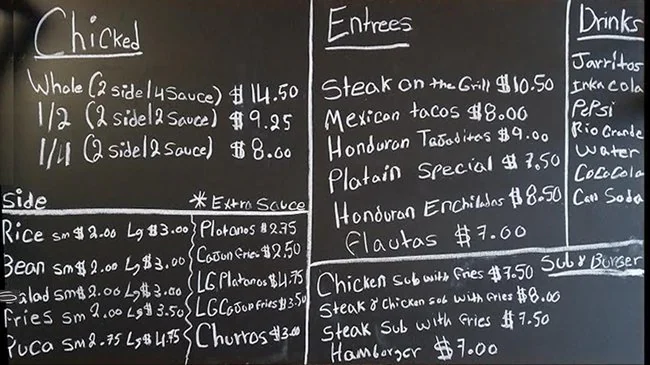 Chicked
Whole (2 side/4 Sauce) $14.50
1/2 (2 side/2 Sauce) $9.25
1/4 (2 side/2 Sauce) $8.00
Side
Rice sm $2.00 Lg $3.00
Bean sm $2.00 Lg $3.00
Salad sm $2.00 Lg $3.00
Fries sm 2.00 Lg $3.50
Yuca sm 2.75 Lg $4.75
* Extra Sauce
Platanos $2.75
Cajun fries $2.50
LG Platanos $4.75
LG Cajun fries $3.50
Churros $3.00
Entrees
Steak on the Grill $10.50
Mexican tacos $8.00
Honduran Tajaditas $9.00
Platain Special $7.50
Honduran Enchiladas $8.50
flautas $7.00
Sub & Burger
Chicken Sub with fries $7.50
Steak & Chicken sub with fries $8.00
Steak Sub with fries $7.50
Hamborger $7.00
Drinks
Jarritos
Inka Cola
Pepsi
Rio Grande
Water
Coca Cola
Can Soda